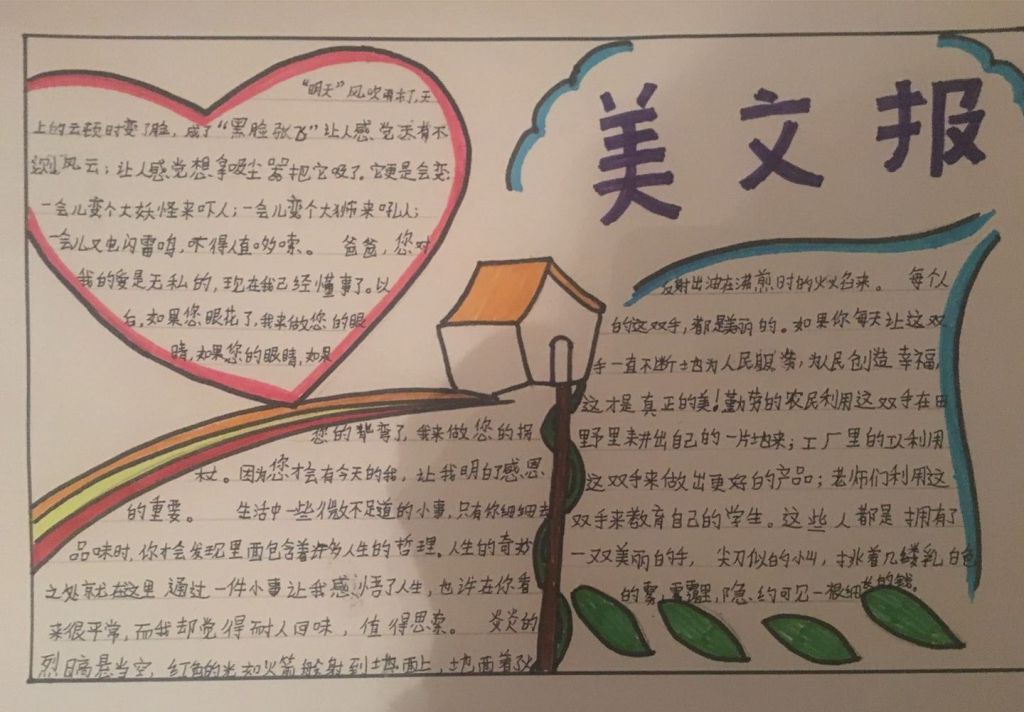 美文报
“明天”风吹来了,天
上的云顿时变了脸,成了“黑脸张飞”让人感觉天有不
测风云;让人感觉想拿吸尘器把它吸了。它更是会变
一会儿变个大妖怪来吓人;一会儿变个大狮来吼人;
一会儿又电闪雷鸣,不得值哆嗦。 爸爸,您对
我的爱是无私的,现在我已经懂事了。以
后,如果您眼花了,我来做您的眼
睛,如果您的眼睛,如果
您的背弯了,我来做您的拐
杖。因为您才会有今天的我,让我明白了感恩
的重要。 生活中一些微不足道的小事,只有你细细去
品味时,你才会发现里面包含着许多人生的哲理。人生的奇妙
之处就在这里 通过一件小事让我感悟了人生,也许在你看
来很平常,而我却觉得耐人回味,值得思索。 炎炎的
烈日高悬当空,红色的光如火箭般射到地面上,地面着了火
反射出油在沸煎时的火火名来。 每个人
的这双手,都是美丽的。如果你每天让这双
手一直不断地为人民服务,为人民创造幸福,
这才是真正的美!勤劳的农民利用这双手在田
野里耕出自己的一片地来;工厂里的工人利用
这双手来做出更好的产品;老师们利用这
双手来教育自己的学生。这些人都是拥有了
一双美丽的手, 尖刀似的小山,挑着几缕乳白色
的雾,雾霭里,隐约可见一根细长的线。